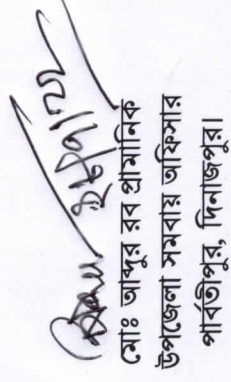 মোঃ আব্দুর রব প্রামানিক
উপজেলা সমবায় অফিসার
পার্বতীপুর, দিনাজপুর।